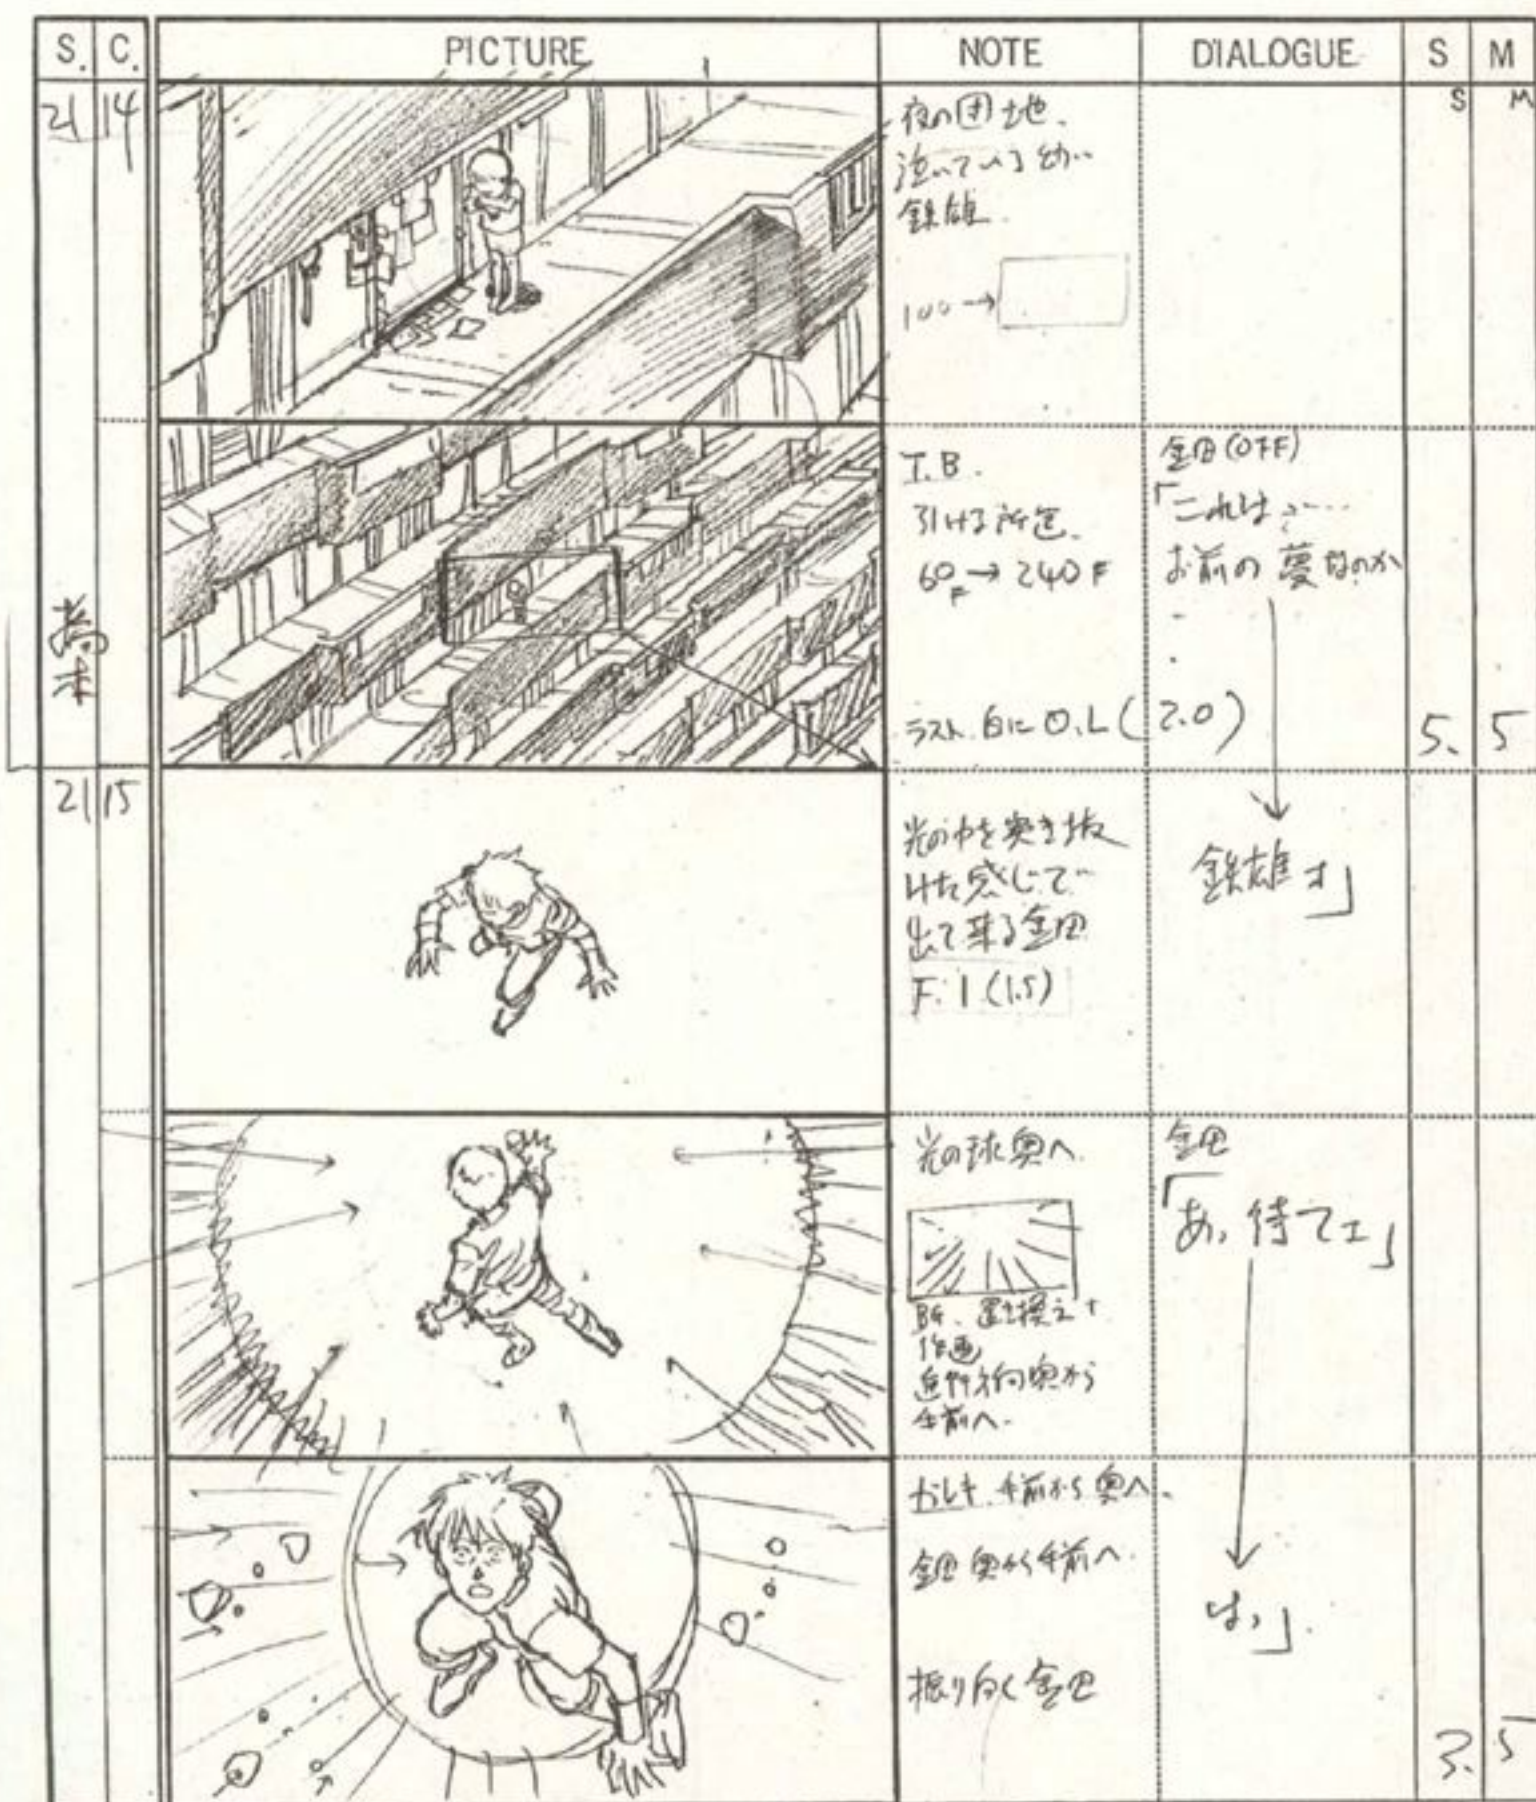 S. C. PICTURE NOTE DIALOGUE S M
21 14
S M
夜の団地.
泣いている幼い
鉄雄.
100→
T.B.
引ける所迄.
60F → 240F
ラスト.白に O.L (2.0)
金田(OFF)
「これは……
お前の夢なのか
5. 5
21 15
光の中を突き抜
けた感じで
出て来る金田
F.I (1.5)
鉄雄ォ」
光の球 奥へ.
作画
進行方向奥から
手前へ.
金田
「あ、待てェ」
ガレキ.手前から奥へ.
金田 奥から手前へ.
振り向く金田
はっ」.
3. 5